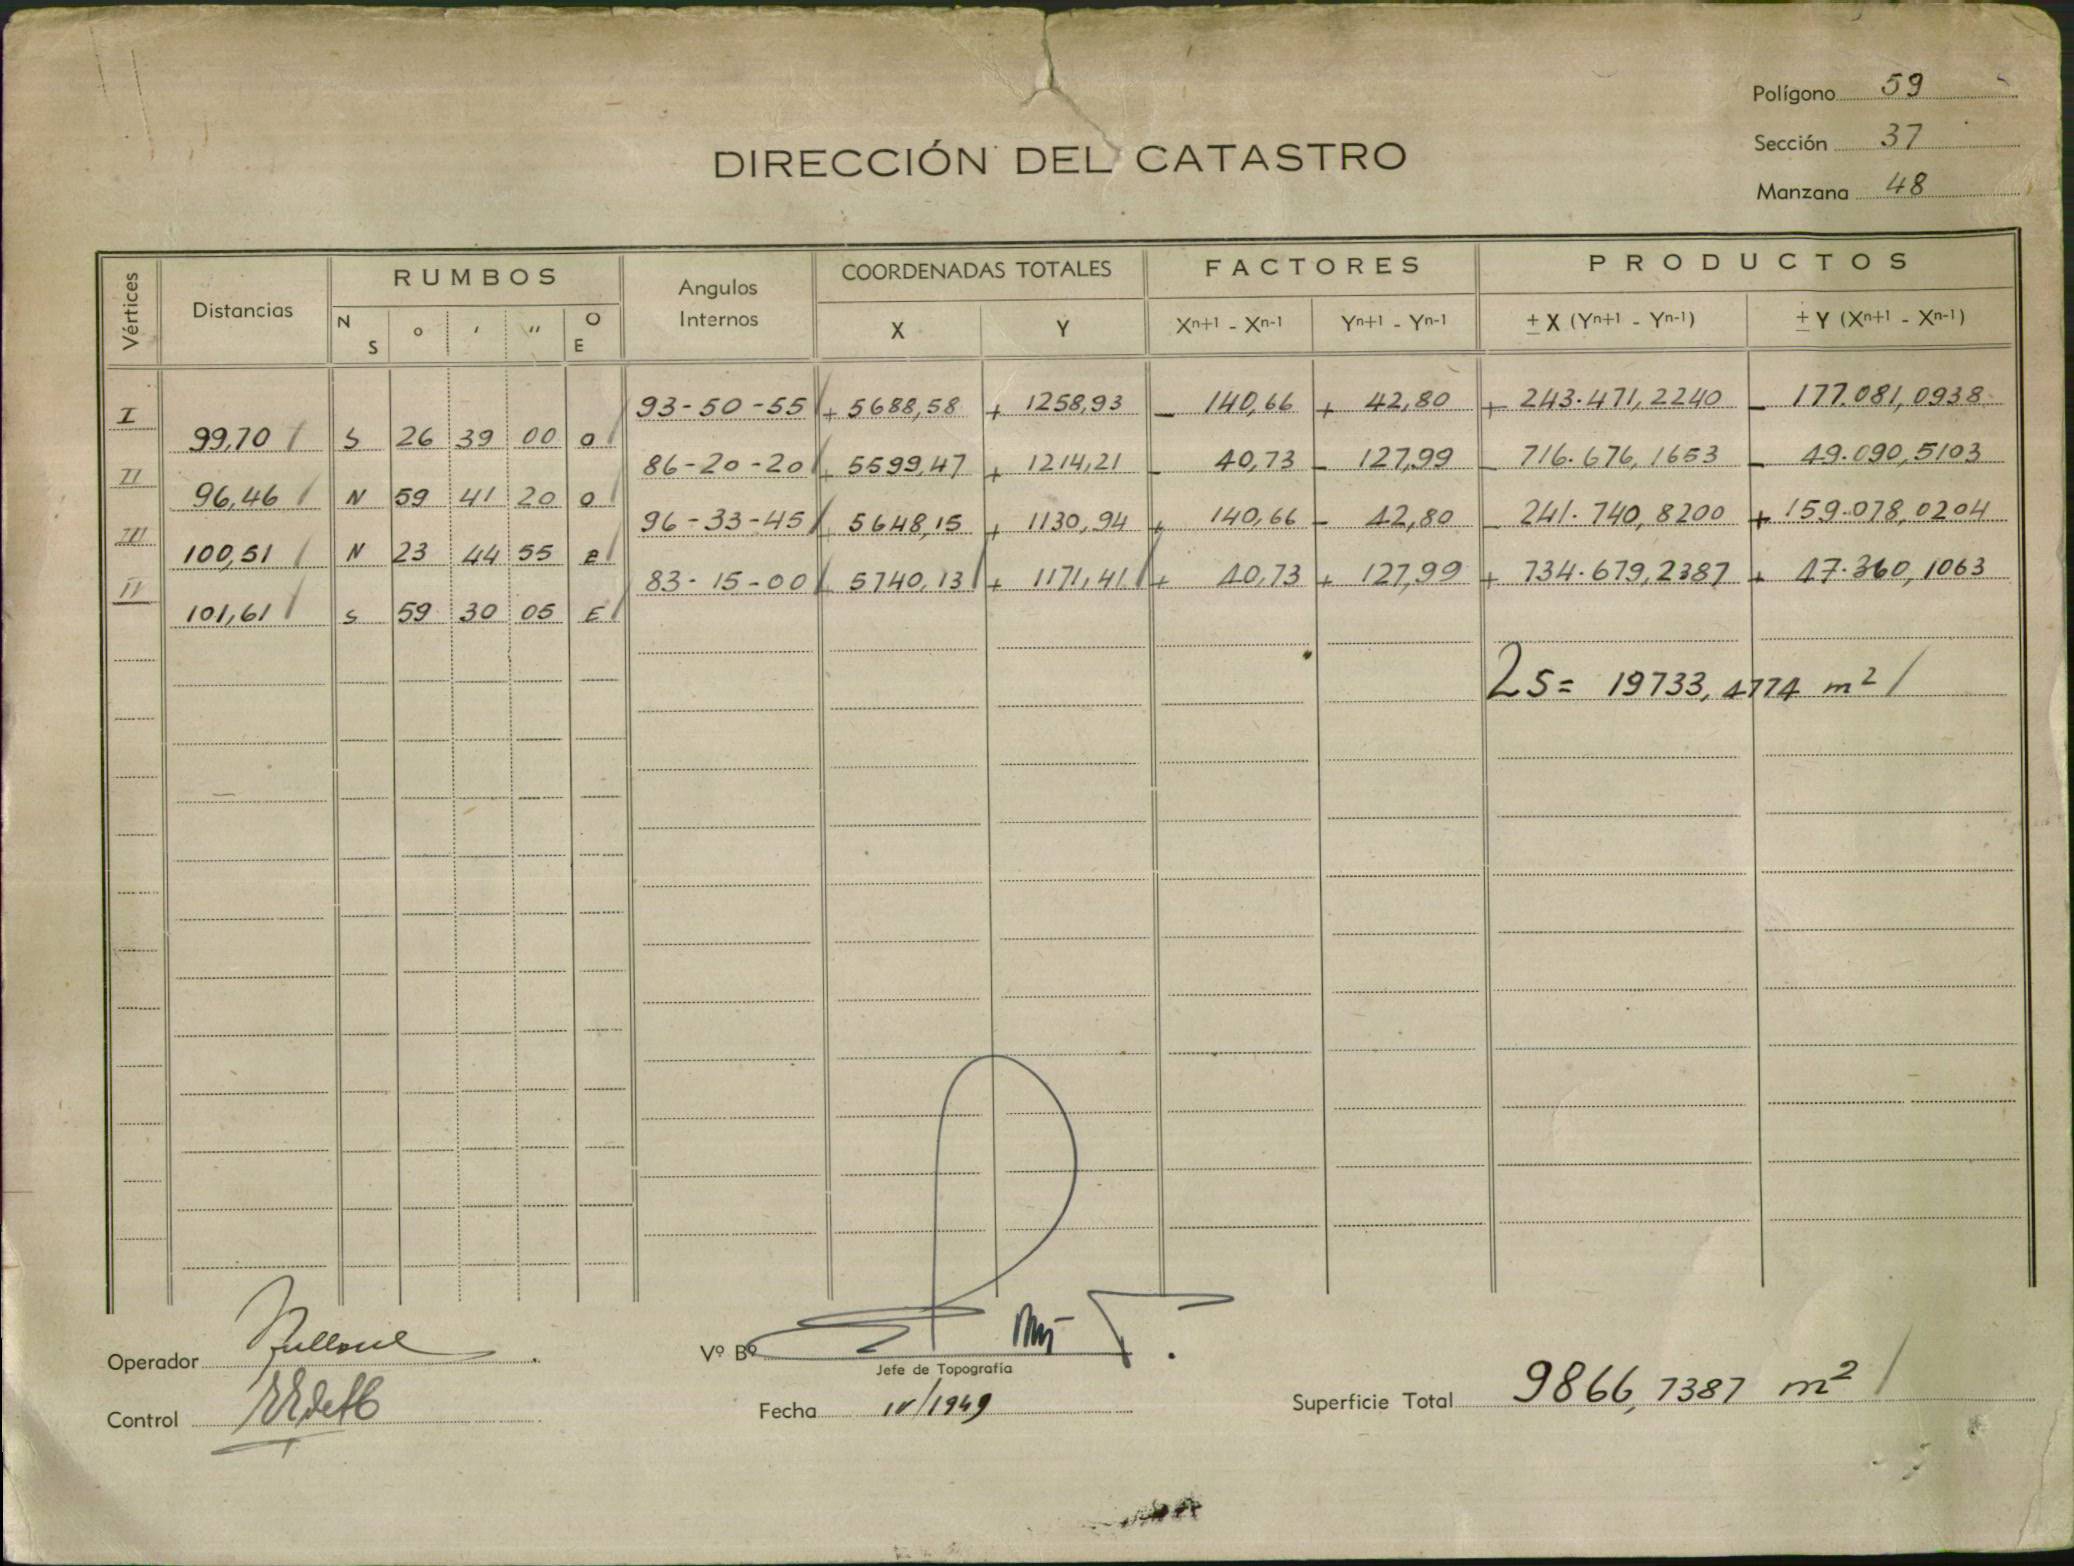 Polígono 59
Sección 37
Manzana 48
DIRECCIÓN DEL CATASTRO
Vértices Distancias RUMBOS Angulos Internos COORDENADAS TOTALES FACTORES PRODUCTOS
N S ° ′ ″ O E X Y Xn+1 - Xn-1 Yn+1 - Yn-1 ± X (Yn+1 - Yn-1) ± Y (Xn+1 - Xn-1)
I 93-50-55 + 5688,58 + 1258,93 - 140,66 + 42,80 + 243.471,2240 - 177.081,0938
99,70 S 26 39 00 O
II 86-20-20 + 5599,47 + 1214,21 - 40,73 - 127,99 - 716.676,1653 - 49.090,5103
96,46 N 59 41 20 O
III 96-33-45 + 5648,15 + 1130,94 + 140,66 - 42,80 - 241.740,8200 + 159.078,0204
100,51 N 23 44 55 E
83-15-00 + 5740,13 + 1171,41 + 40,73 + 127,99 + 734.679,2387 + 47.360,1063
101,61 S 59 30 05 E
2s = 19733,4774 m²
Operador
Vº Bº
Jefe de Topografía
Control
Fecha IV/1949
Superficie Total 9866,7387 m²